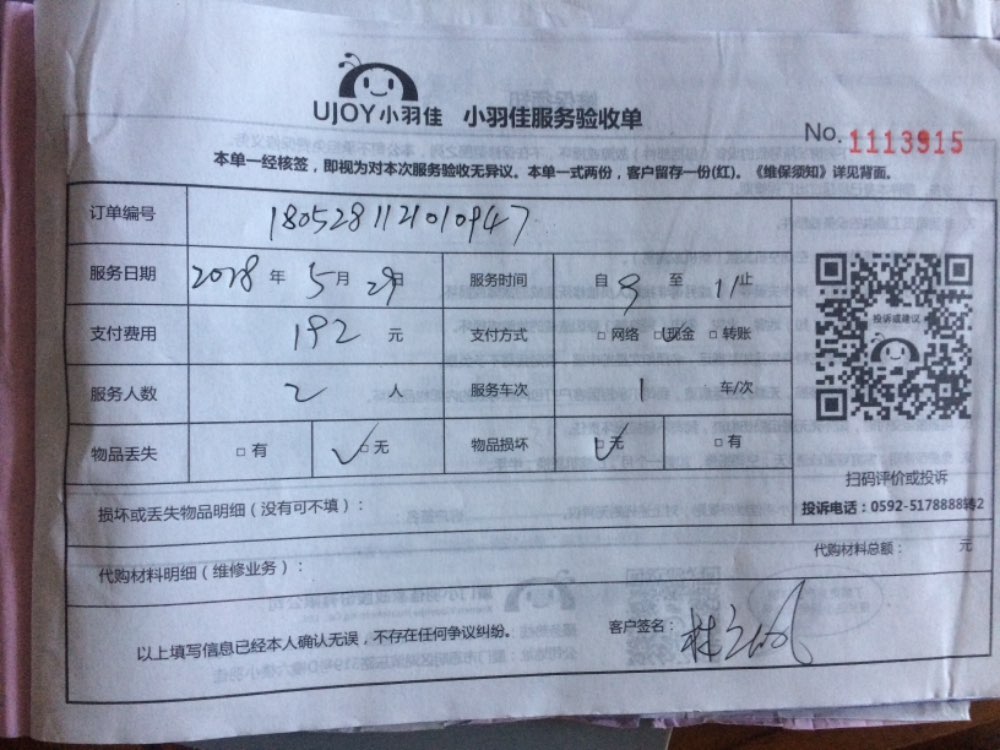 UJOY小羽佳 小羽佳服务验收单
No. 1113915
本单一经核签，即视为对本次服务验收无异议。本单一式两份，客户留存一份(红)。《维保须知》详见背面。
订单编号 1805281121010947
服务日期 2018 年 5 月 29 日 服务时间 自 9 至 11 止
投诉或建议
支付费用 192 元 支付方式 □ 网络 □ 现金 □ 转账
服务人数 2 人 服务车次 1 车/次
物品丢失 □ 有 □ 无 物品损坏 □ 无 □ 有
扫码评价或投诉
损坏或丢失物品明细（没有可不填）：
投诉电话：0592-5178888
代购材料总额： 元
代购材料明细（维修业务）：
以上填写信息已经本人确认无误，不存在任何争议纠纷。
客户签名：